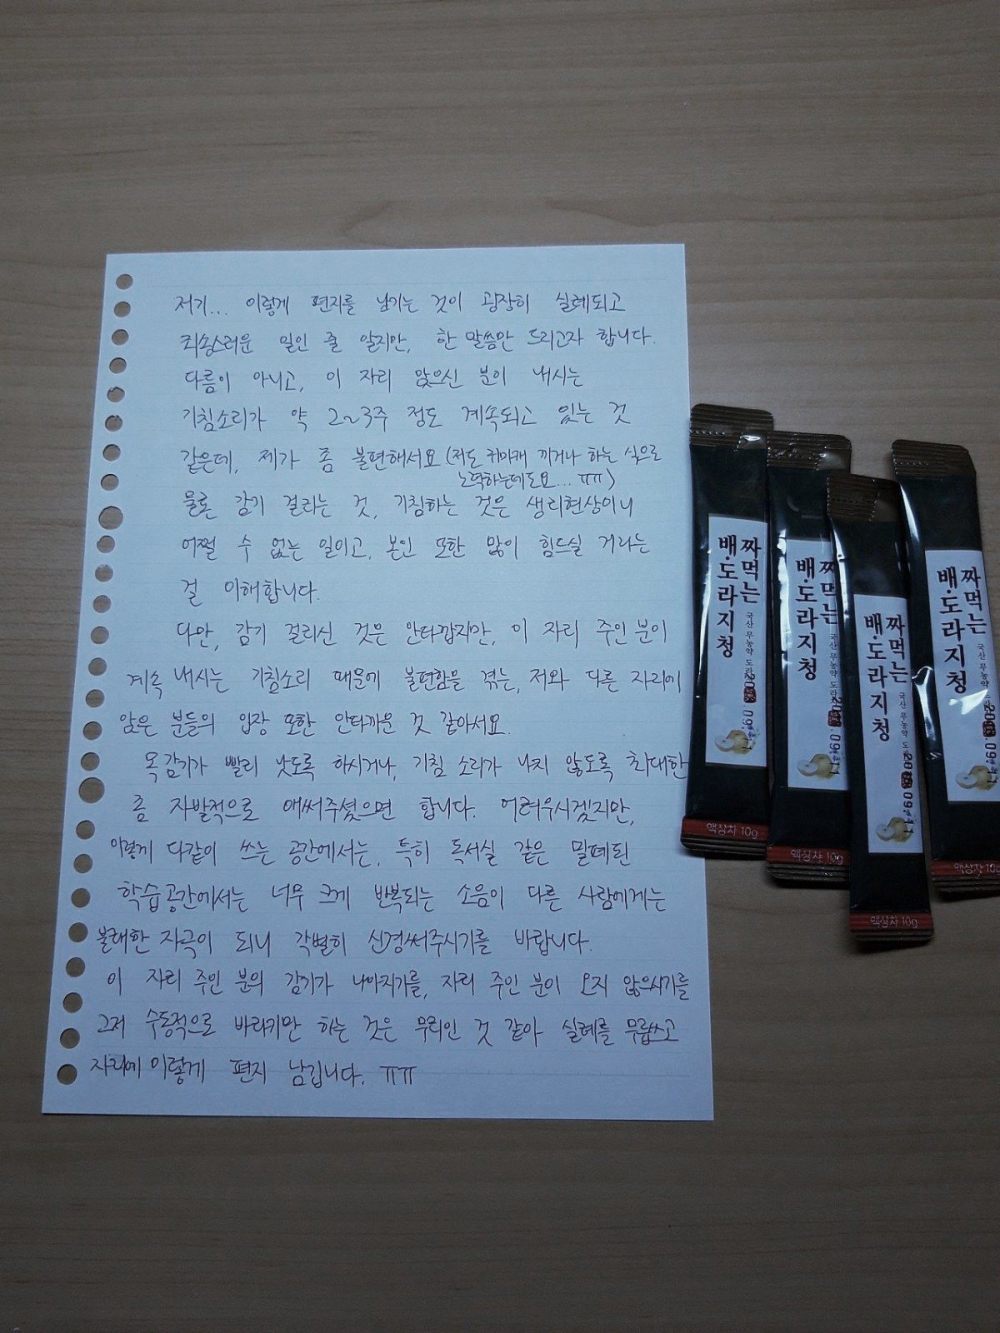 저기... 이렇게 편지를 남기는 것이 굉장히 실례되고
죄송스러운 일인 줄 알지만, 한 말씀만 드리고자 합니다.
다름이 아니고, 이 자리 앉으신 분이 내시는
기침소리가 약 2~3주 정도 계속되고 있는 것
같은데, 제가 좀 불편해서요 (저도 귀마개 끼거나 하는 식으로
노력하는데도요... ㅠㅠ)
물론 감기 걸리는 것, 기침하는 것은 생리현상이니
어쩔 수 없는 일이고, 본인 또한 많이 힘드실 거라는
걸 이해합니다.
다만, 감기 걸리신 것은 안타깝지만, 이 자리 주인 분이
계속 내시는 기침소리 때문에 불편함을 겪는, 저와 다른 자리에
앉은 분들의 입장 또한 안타까운 것 같아서요.
목감기가 빨리 낫도록 하시거나, 기침 소리가 나지 않도록 최대한
좀 자발적으로 애써주셨으면 합니다. 어려우시겠지만,
이렇게 다같이 쓰는 공간에서는, 특히 독서실 같은 밀폐된
학습공간에서는 너무 크게 반복되는 소음이 다른 사람에게는
불쾌한 자극이 되니 각별히 신경써주시기를 바랍니다.
이 자리 주인 분의 감기가 나아지기를, 자리 주인 분이 오지 않으시기를
그저 수동적으로 바라기만 하는 것은 무리인 것 같아 실례를 무릅쓰고
자리에 이렇게 편지 남깁니다. ㅠㅠ
짜먹는
배·도라지청
국산 무농약
액상차 10g
짜먹는
배·도라지청
국산 무농약
액상차 10g
짜먹는
배·도라지청
국산 무농약
액상차 10g
짜먹는
배·도라지청
국산 무농약
액상차 10g